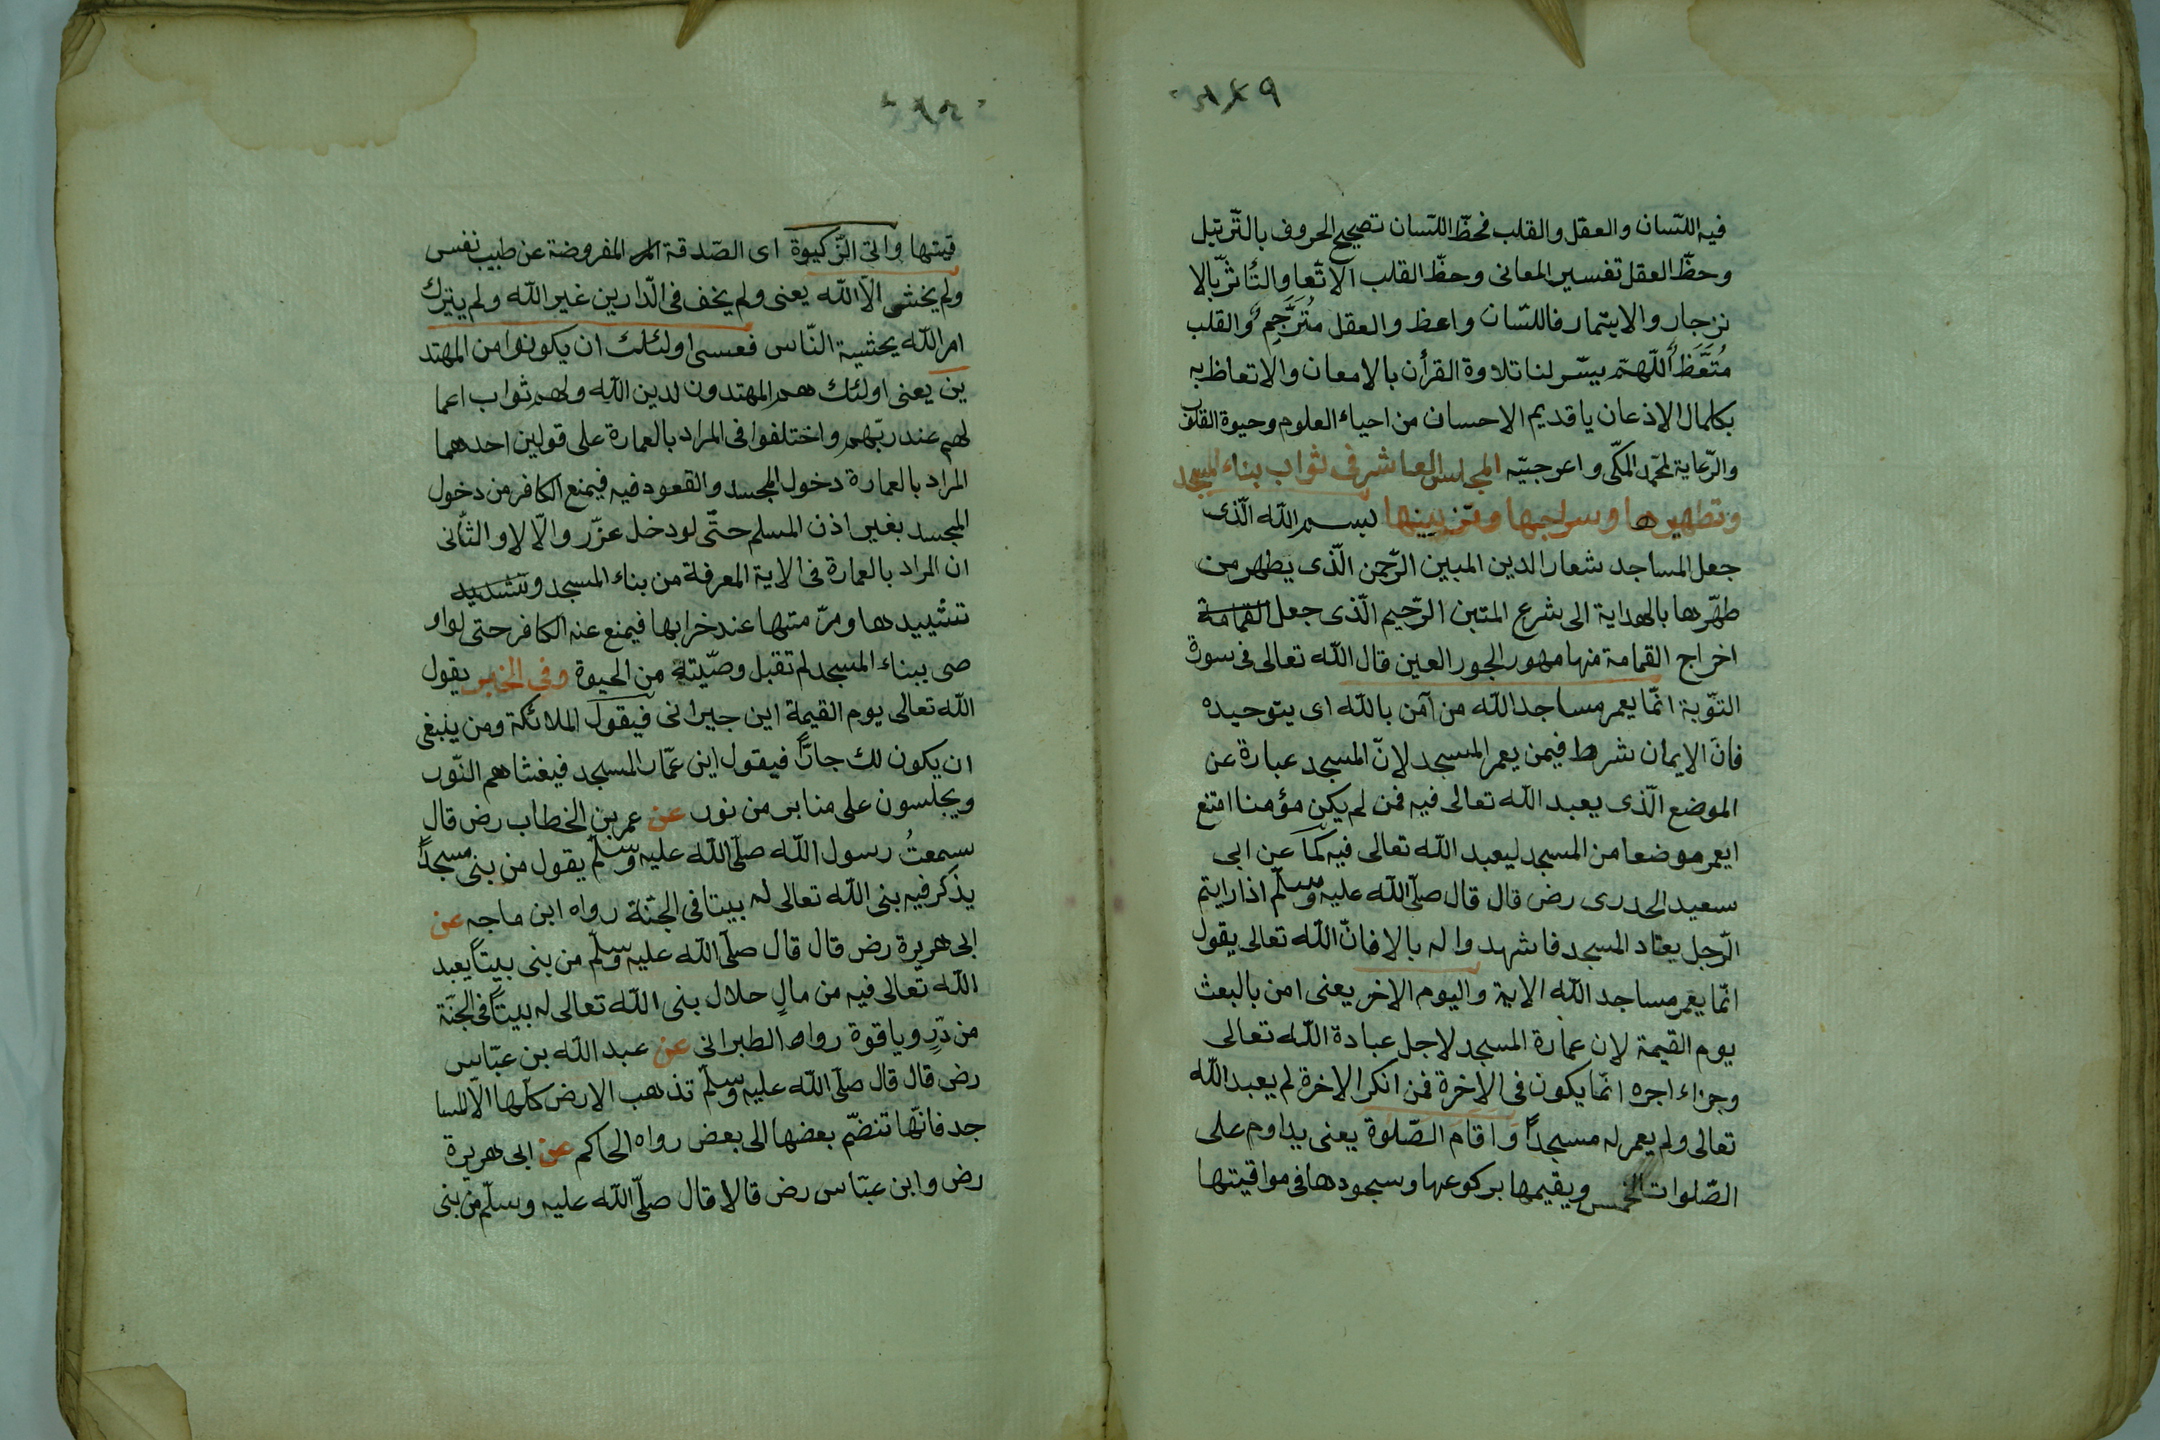 فيه اللّسان والعقل والقلب فحظّ اللّسان تصحيح الحروف بالتّرتيل
وحظّ العقل تفسير المعانى وحظّ القلب الاتّعا والتّأثّر بالا
نزجار والايتمار فاللّسان واعظ والعقل مُتَرَجِم والقلب
مُتَّعَظ اللّهمّ يسّر لنا تلاوة القرأن بالامعان والاتعاظ به
بكلمال الاذعان يا قديم الاحسان من احياء العلوم وحيوة القلوب
والرّعاية لمحمّد المكّى واعرجيّه المجلس العاشر فى ثواب بناء المسجد
وتطهيرها وسراجها وتزيينها بسم الله الّذى
جعل المساجد شعار الدين المبين الرّحمن الّذى يطهر من
طهّرها بالهداية الى شرع المتين الرّحيم الّذى جعل القمامة
اخراج القمامة منها مهور الحور العين قال الله تعالى فى سورة
التّوبة انّما يعمر مساجد الله من آمن بالله اى بتوحيده
فانّ الايمان شرط فيمن يعمر المسجد لانّ المسجد عبارة عن
الموضع الّذى يعبد الله تعالى فيه فمن لم يكن مؤمنا امتنع
ايعمر موضعا من المسجد ليعبد الله تعالى فيه كما عن ابى
سعيد الخدرى رض قال قال صلّى الله عليه وسلّم اذا رايتم
الرّجل يعتاد المسجد فاشهدوا له بالا فانّ الله تعالى يقول
انّما يعمر مساجد الله الاية واليوم الاخر يعنى امن بالبعث
يوم القيمة لان عمارة المسجد لاجل عبادة الله تعالى
وجزاء اجره انّما يكون فى الاخرة فمن انكر الاخرة لم يعبد الله
تعالى ولم يعمر له مسجدًا وَاَقَامَ الصّلوة يعنى يداوم على
الصّلوات الخمس ويقيمها بركوعها وسجودها فى مواقيتها
قيتها واتى الزّكيوة اى الصّدقة المفروضة عن طيب نفس
ولم يخشى الّا الله يعنى ولم يخف فى الدّارين غير الله ولم يترك
امر الله بخشية النّاس فعسى اولئك ان يكونوا من المهتد
ين يعنى اولئك هم المهتدون لدين الله ولهم ثواب اعما
لهم عند ربّهم واختلفوا فى المراد بالعمارة على قولين احدهما
المراد بالعمارة دخول المجسد والقعود فيه فيمنع الكافر من دخول
المجسد بغير اذن المسلم حتّى لو دخل عزّر والّا لا والثّانى
ان المراد بالعمارة فى الاية المعرفلة من بناء المسجد وتشديد
تشييدها ومرّمتها عند خرابها فيمنع عنه الكافر حتى لواو
صى ببناء المسجد لم تقبل وصّيته من الحيوة وفى الخبر يقول
الله تعالى يوم القيمة اين جيرانى فيقول الملائكة ومن ينبغى
ان يكون لك جارًا فيقول اين عمّار المسجد فيغشاهم النّور
ويجلسون على منابر من نور عن عمر بن الخطاب رض قال
سمعتُ رسول الله صلّى الله عليه وسلّم يقول من بنى مسجدًا
يذكر فيه بنى الله تعالى له بيتا فى الجنّة رواه ابن ماجه عن
ابى هريرة رض قال قال صلّى الله عليه وسلّم من بنى بيتًا يعبد
الله تعالى فيه من مالٍ حلال بنى الله تعالى له بيتًا فى الجنّة
من دّرٍ وياقوة رواه الطبرانى عن عبد الله بن عبّاس
رض قال قال صلّى الله عليه وسلّم تذهب الارض كلّها الّا المسا
جد فانّها تنضمّ بعضها الى بعض رواه الحاكم عن ابى هريرة
رض وابن عبّاس رض قالا قال صلّى الله عليه وسلّم من بنى